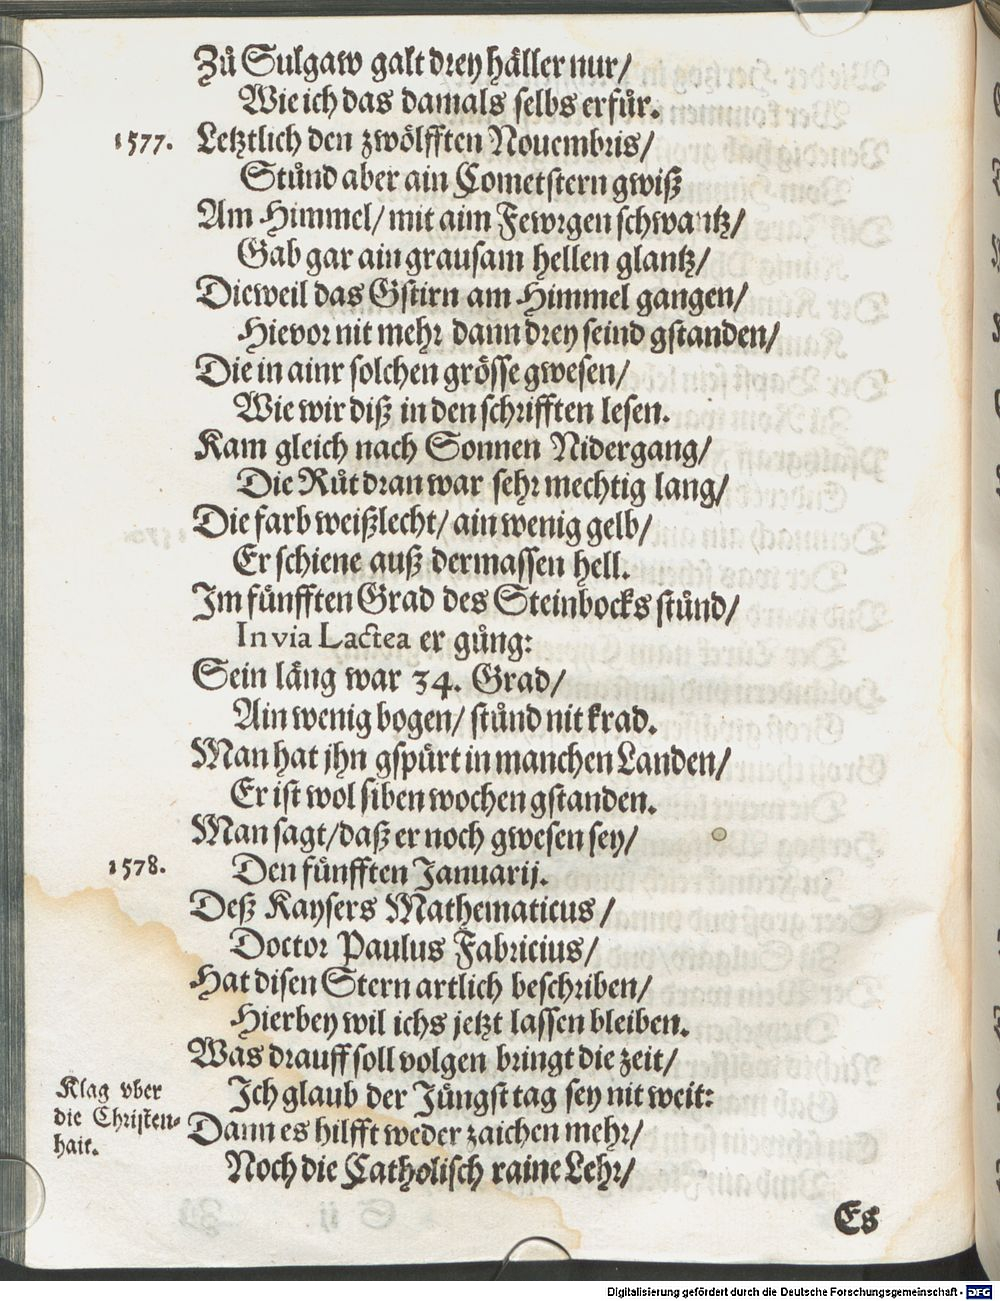 Zů Sulgaw galt drey häller nur/
Wie ich das damals selbs erfůr.
1577. Letztlich den zwölfften Nouembris/
Stůnd aber ain Cometstern gwiß
Am Himmel/ mit aim Fewrgen schwantz/
Gab gar ain grausam hellen glantz/
Dieweil das Gstirn am Himmel gangen/
Hievor nit mehr dann drey seind gstanden/
Die in ainr solchen grösse gwesen/
Wie wir diß in den schrifften lesen.
Kam gleich nach Sonnen Nidergang/
Die Růt dran war sehr mechtig lang/
Die farb weißlecht/ ain wenig gelb/
Er schiene auß dermassen hell.
Im fünfften Grad des Steinbocks stůnd/
In via Lactea er gůng:
Sein läng war 34. Grad/
Ain wenig bogen/ stůnd nit krad.
Man hat jhn gspürt in manchen Landen/
Er ist wol siben wochen gstanden.
Man sagt/ daß er noch gwesen sey/
1578. Den fünfften Januarij.
Deß Kaysers Mathematicus/
Doctor Paulus Fabricius/
Hat disen Stern artlich beschriben/
Hierbey wil ichs jetzt lassen bleiben.
Was drauff soll volgen bringt die zeit/
Ich glaub der Jüngst tag sey nit weit:
Klag vber
die Christen-
hait.
Dann es hilfft weder zaichen mehr/
Noch die Catholisch raine Lehr/
Es
Digitalisierung gefördert durch die Deutsche Forschungsgemeinschaft - DFG